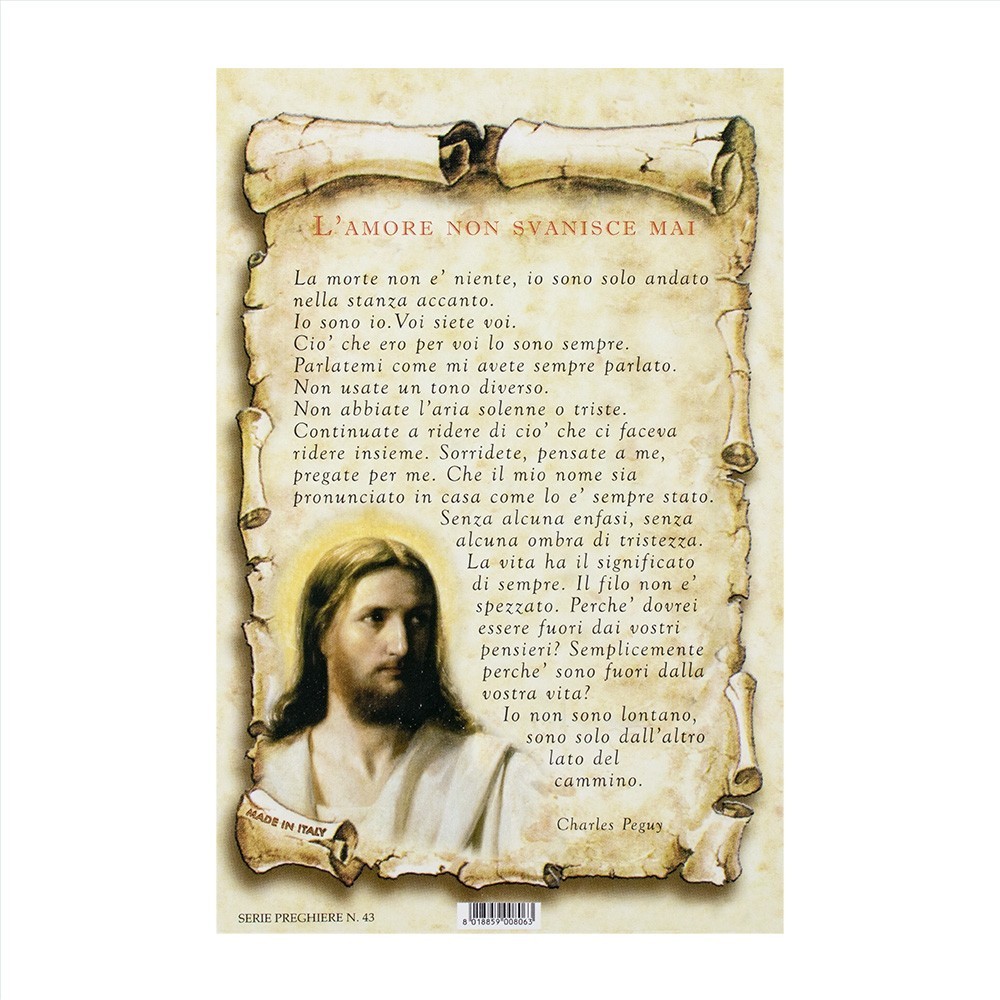 L'AMORE NON SVANISCE MAI
La morte non e' niente, io sono solo andato
nella stanza accanto.
Io sono io.Voi siete voi.
Cio' che ero per voi lo sono sempre.
Parlatemi come mi avete sempre parlato.
Non usate un tono diverso.
Non abbiate l'aria solenne o triste.
Continuate a ridere di cio' che ci faceva
ridere insieme. Sorridete, pensate a me,
pregate per me. Che il mio nome sia
pronunciato in casa come lo e' sempre stato.
Senza alcuna enfasi, senza
alcuna ombra di tristezza.
La vita ha il significato
di sempre. Il filo non e'
spezzato. Perche' dovrei
essere fuori dai vostri
pensieri? Semplicemente
perche' sono fuori dalla
vostra vita?
Io non sono lontano,
sono solo dall'altro
lato del
cammino.
Charles Peguy
MADE IN ITALY
SERIE PREGHIERE N. 43
8 018859 008063